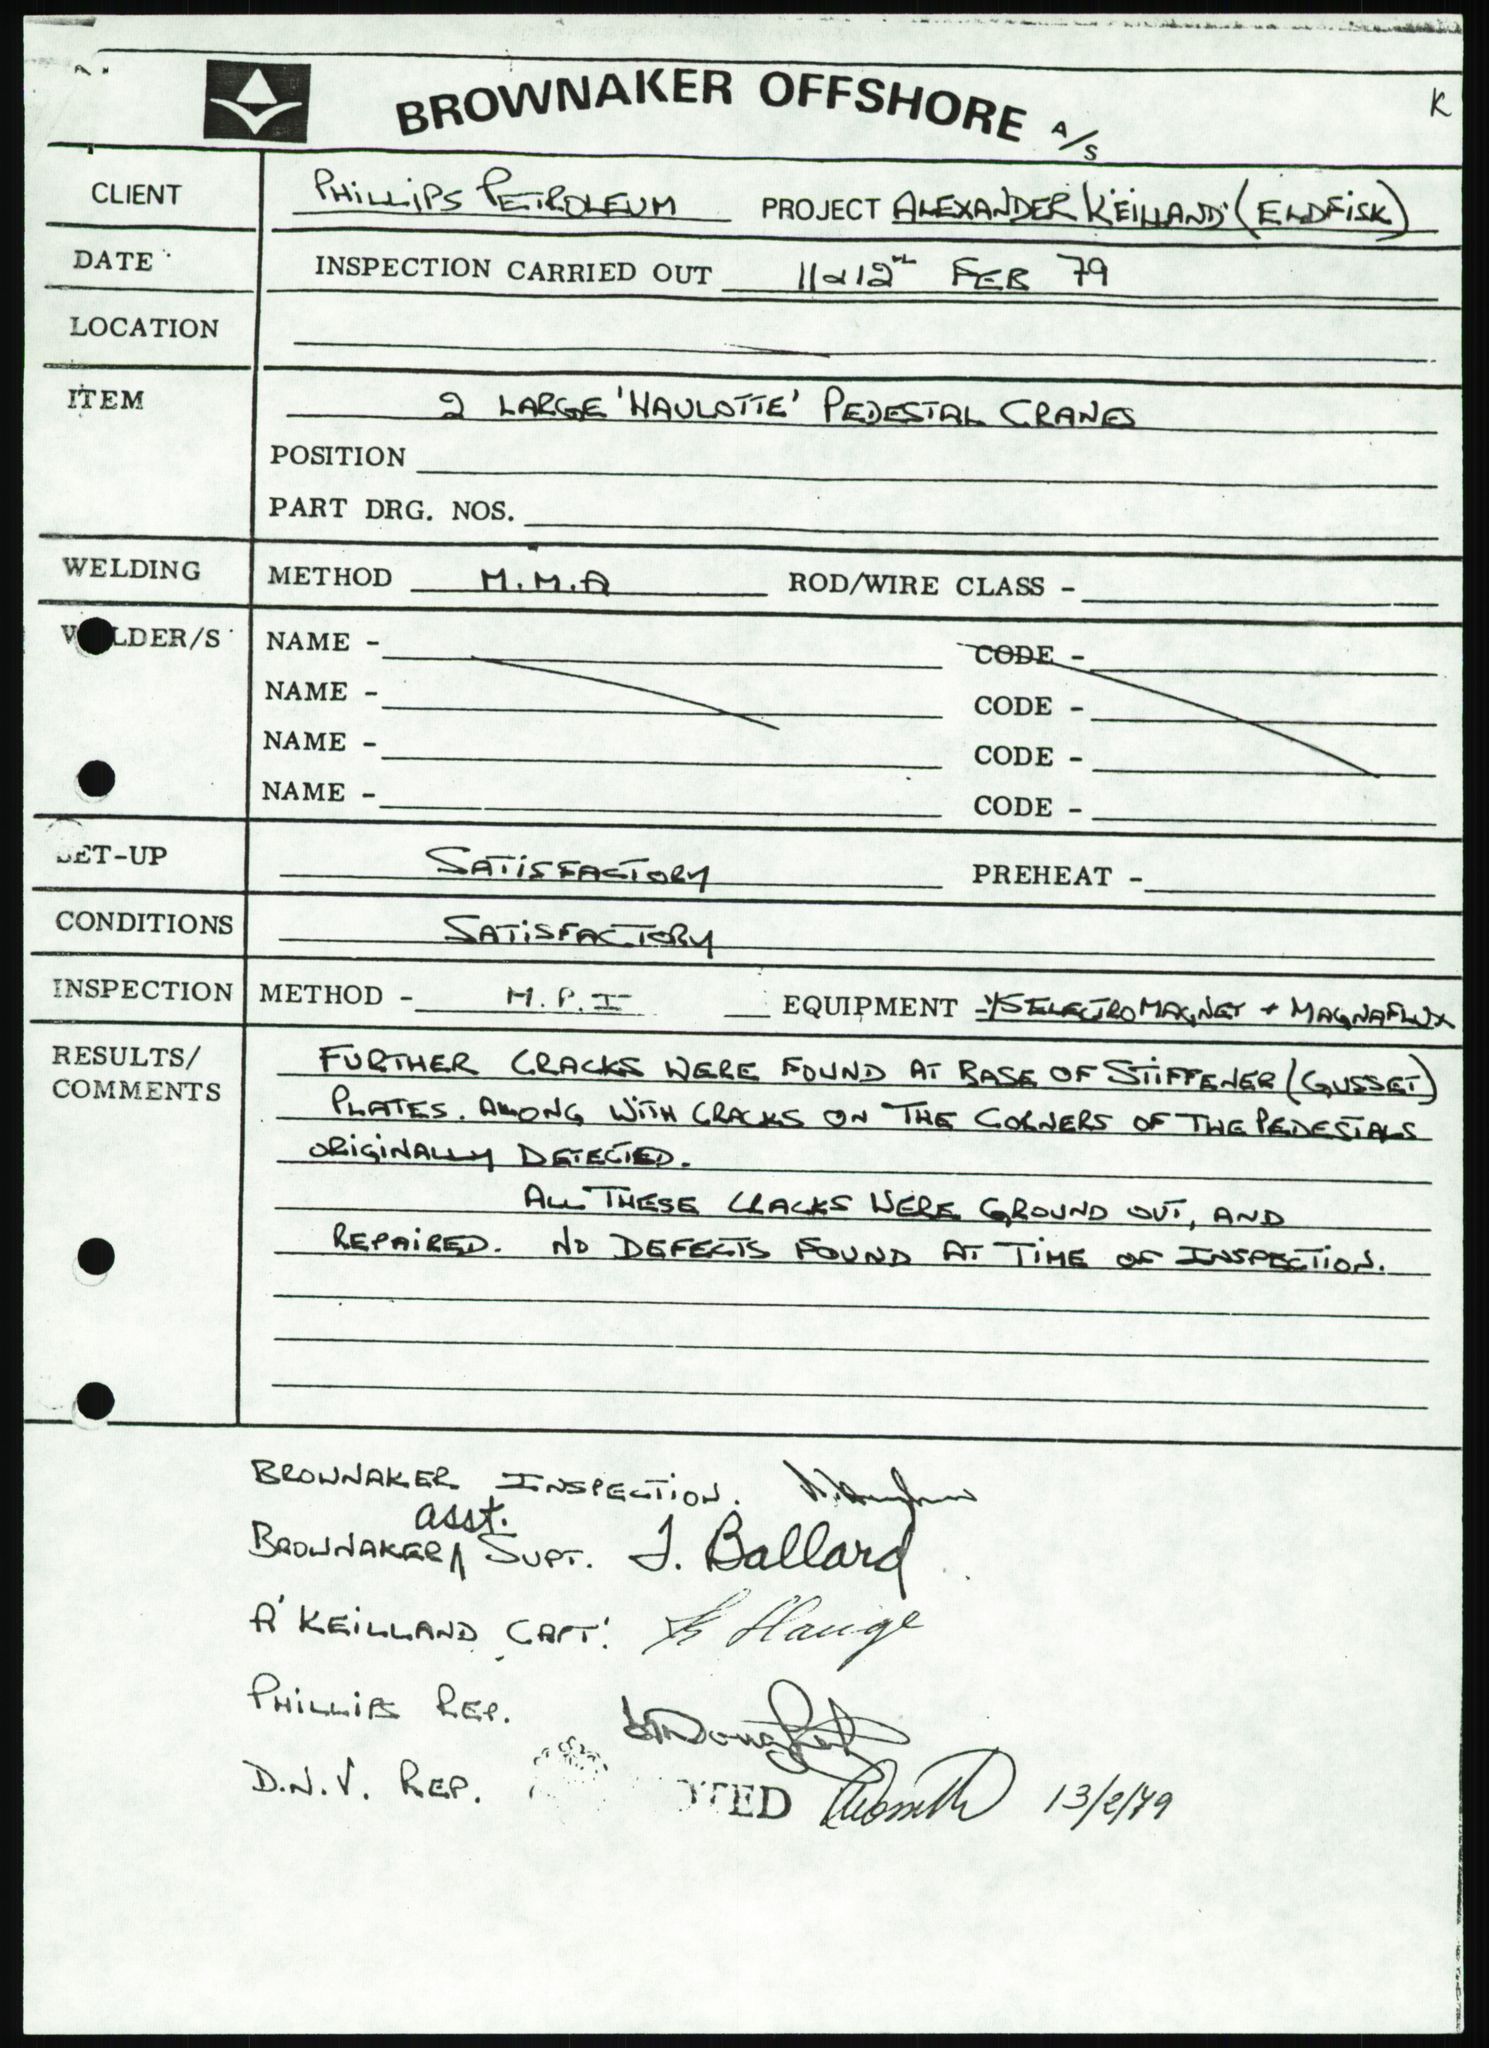 K
BROWNAKER OFFSHORE A/S
CLIENT PHILLIPS PETROLEUM PROJECT ALEXANDER KEILLAND (ELDFISK)
DATE INSPECTION CARRIED OUT 11 & 12th FEB 79
LOCATION
ITEM 2 LARGE 'HAULOTTE' PEDESTAL CRANES
POSITION
PART DRG. NOS.
WELDING METHOD M.M.A ROD/WIRE CLASS -
WELDER/S NAME - CODE -
NAME - CODE -
NAME - CODE -
NAME - CODE -
SET-UP SATISFACTORY PREHEAT -
CONDITIONS SATISFACTORY
INSPECTION METHOD - M.P.I EQUIPMENT - Y5 ELECTROMAGNET + MAGNAFLUX
RESULTS/ COMMENTS
FURTHER CRACKS WERE FOUND AT BASE OF STIFFENER (GUSSET)
PLATES. ALONG WITH CRACKS ON THE CORNERS OF THE PEDESTALS
ORIGINALLY DETECTED.
ALL THESE CRACKS WERE GROUND OUT, AND
REPAIRED. NO DEFECTS FOUND AT TIME OF INSPECTION.
BROWNAKER INSPECTION.
BROWNAKER asst. SUPT. J. Ballard
A' KEILLAND CAPT. Hauge
PHILLIPS REP.
D.N.V. REP. 13/2/79